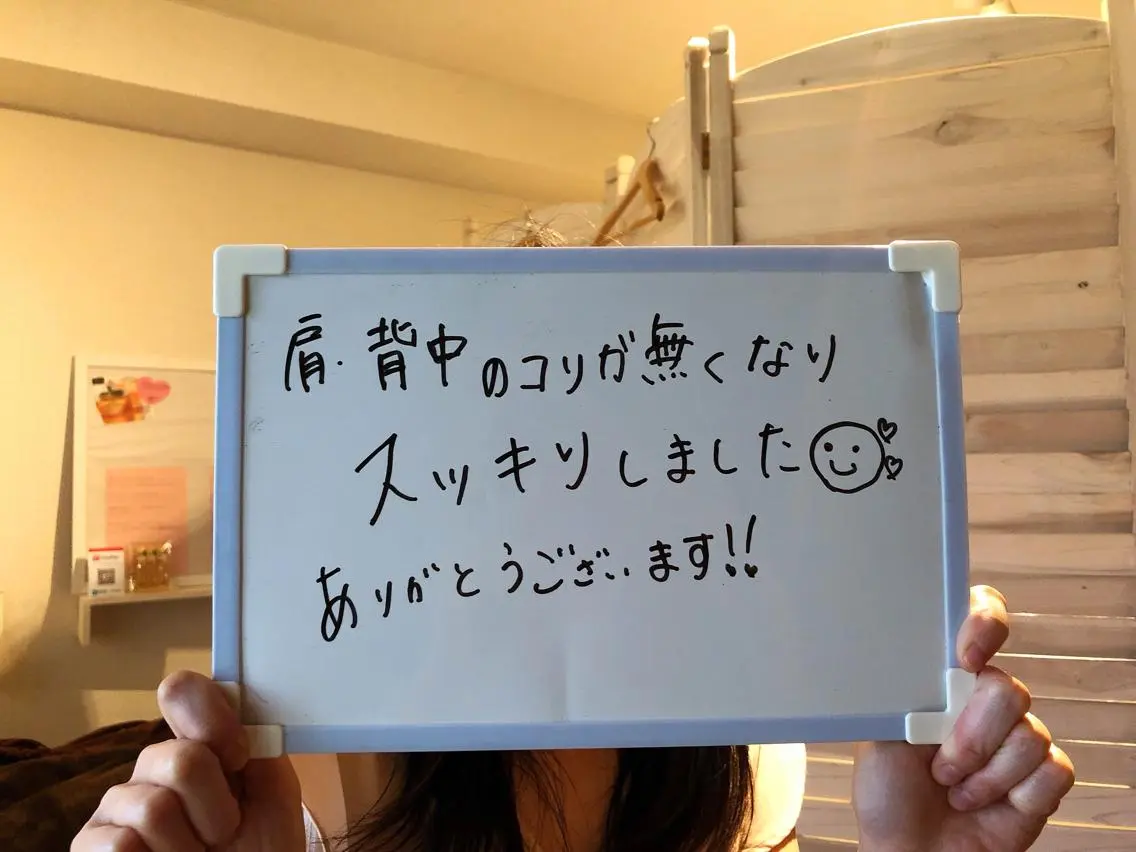 肩・背中のコリが無くなり
スッキリしました
ありがとうございます!!